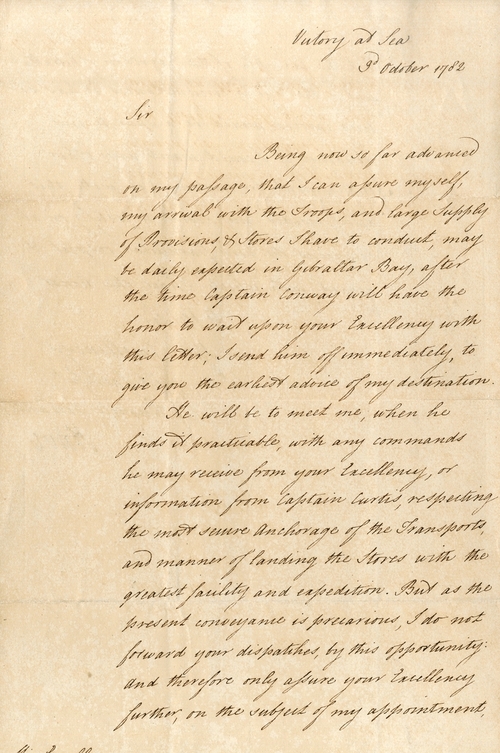 Victory at Sea
3d October 1782
Sir
Being now so far advanced
on my passage, that I can assure myself,
my arrival with the Troops, and large Supply
of Provisions & Stores I have to conduct, may
be daily expected in Gibraltar Bay, after
the time Captain Conway will have the
honor to wait upon your Excellency with
this letter; I send him off immediately, to
give you the earliest advice of my destination.
He will be to meet me, when he
finds it practicable, with any commands
he may receive from your Excellency, or
information from Captain Curtis, respecting
the most secure Anchorage of the Transports,
and manner of landing the Stores with the
greatest facility and expedition. But as the
present conveyance is precarious, I do not
forward your dispatches, by this opportunity:
And therefore only assure your Excellency
further, on the subject of my appointment,